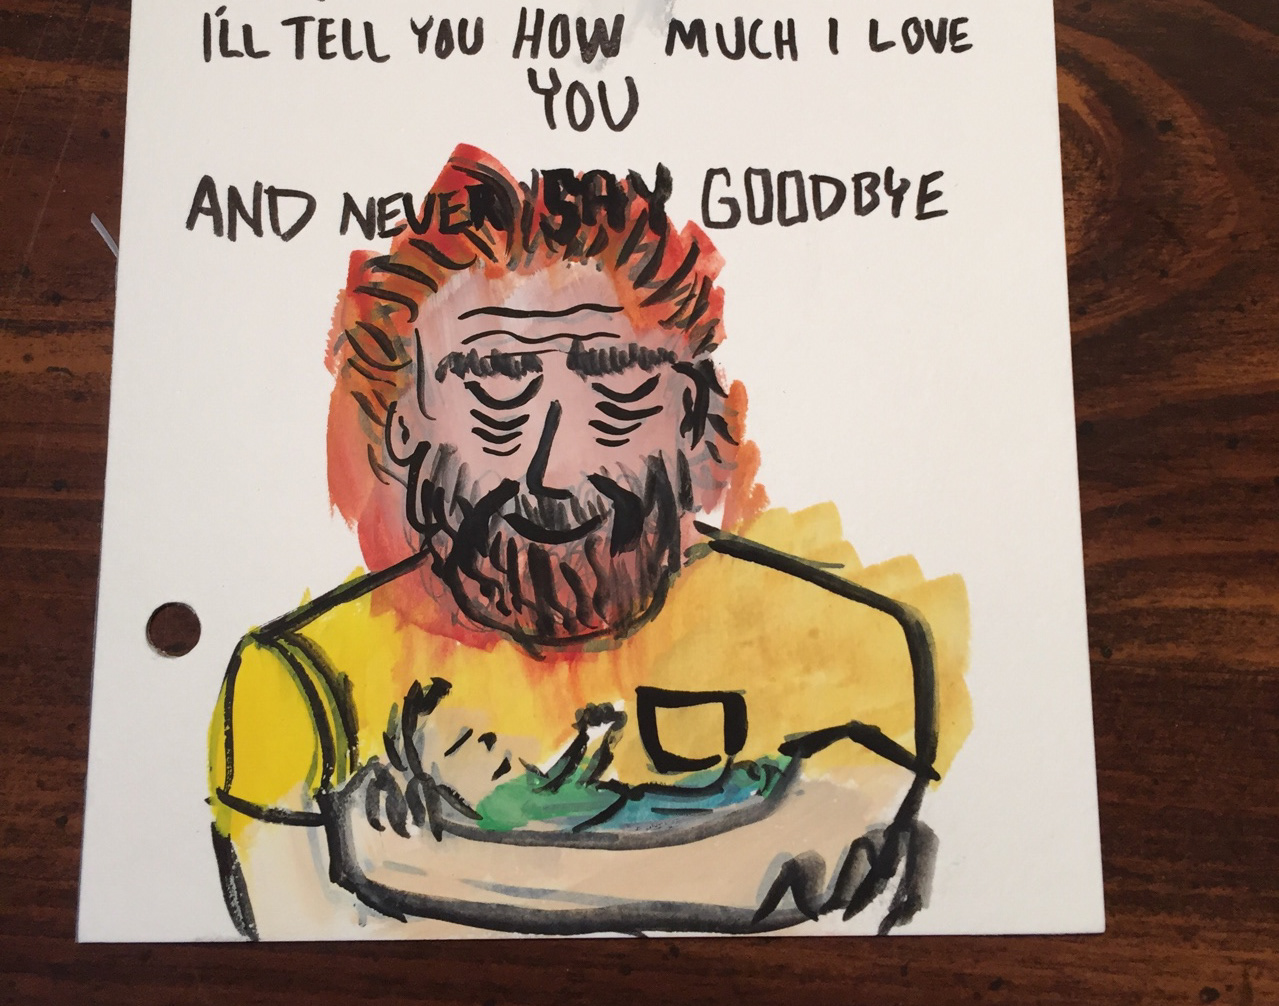 I'LL TELL YOU HOW MUCH I LOVE
YOU
AND NEVER SAY GOODBYE